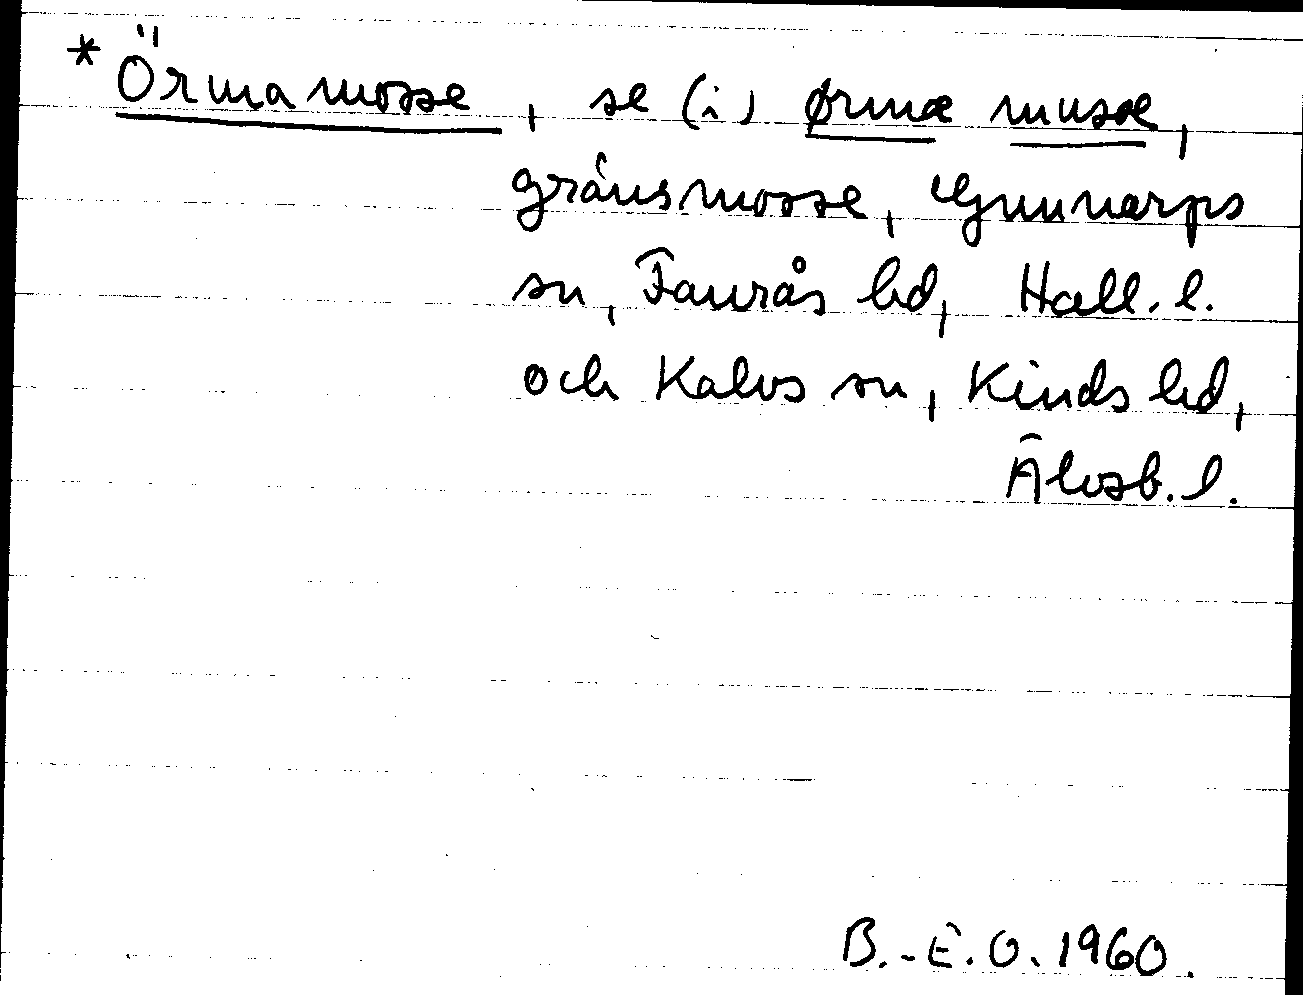 * Örmamosse, se (i) ørmæ musæ,
gränsmosse, Gunnarps
sn, Faurås hd, Hall. l.
och Kalvs sn, Kinds hd,
Älvsb. l.
B.-E.O. 1960.